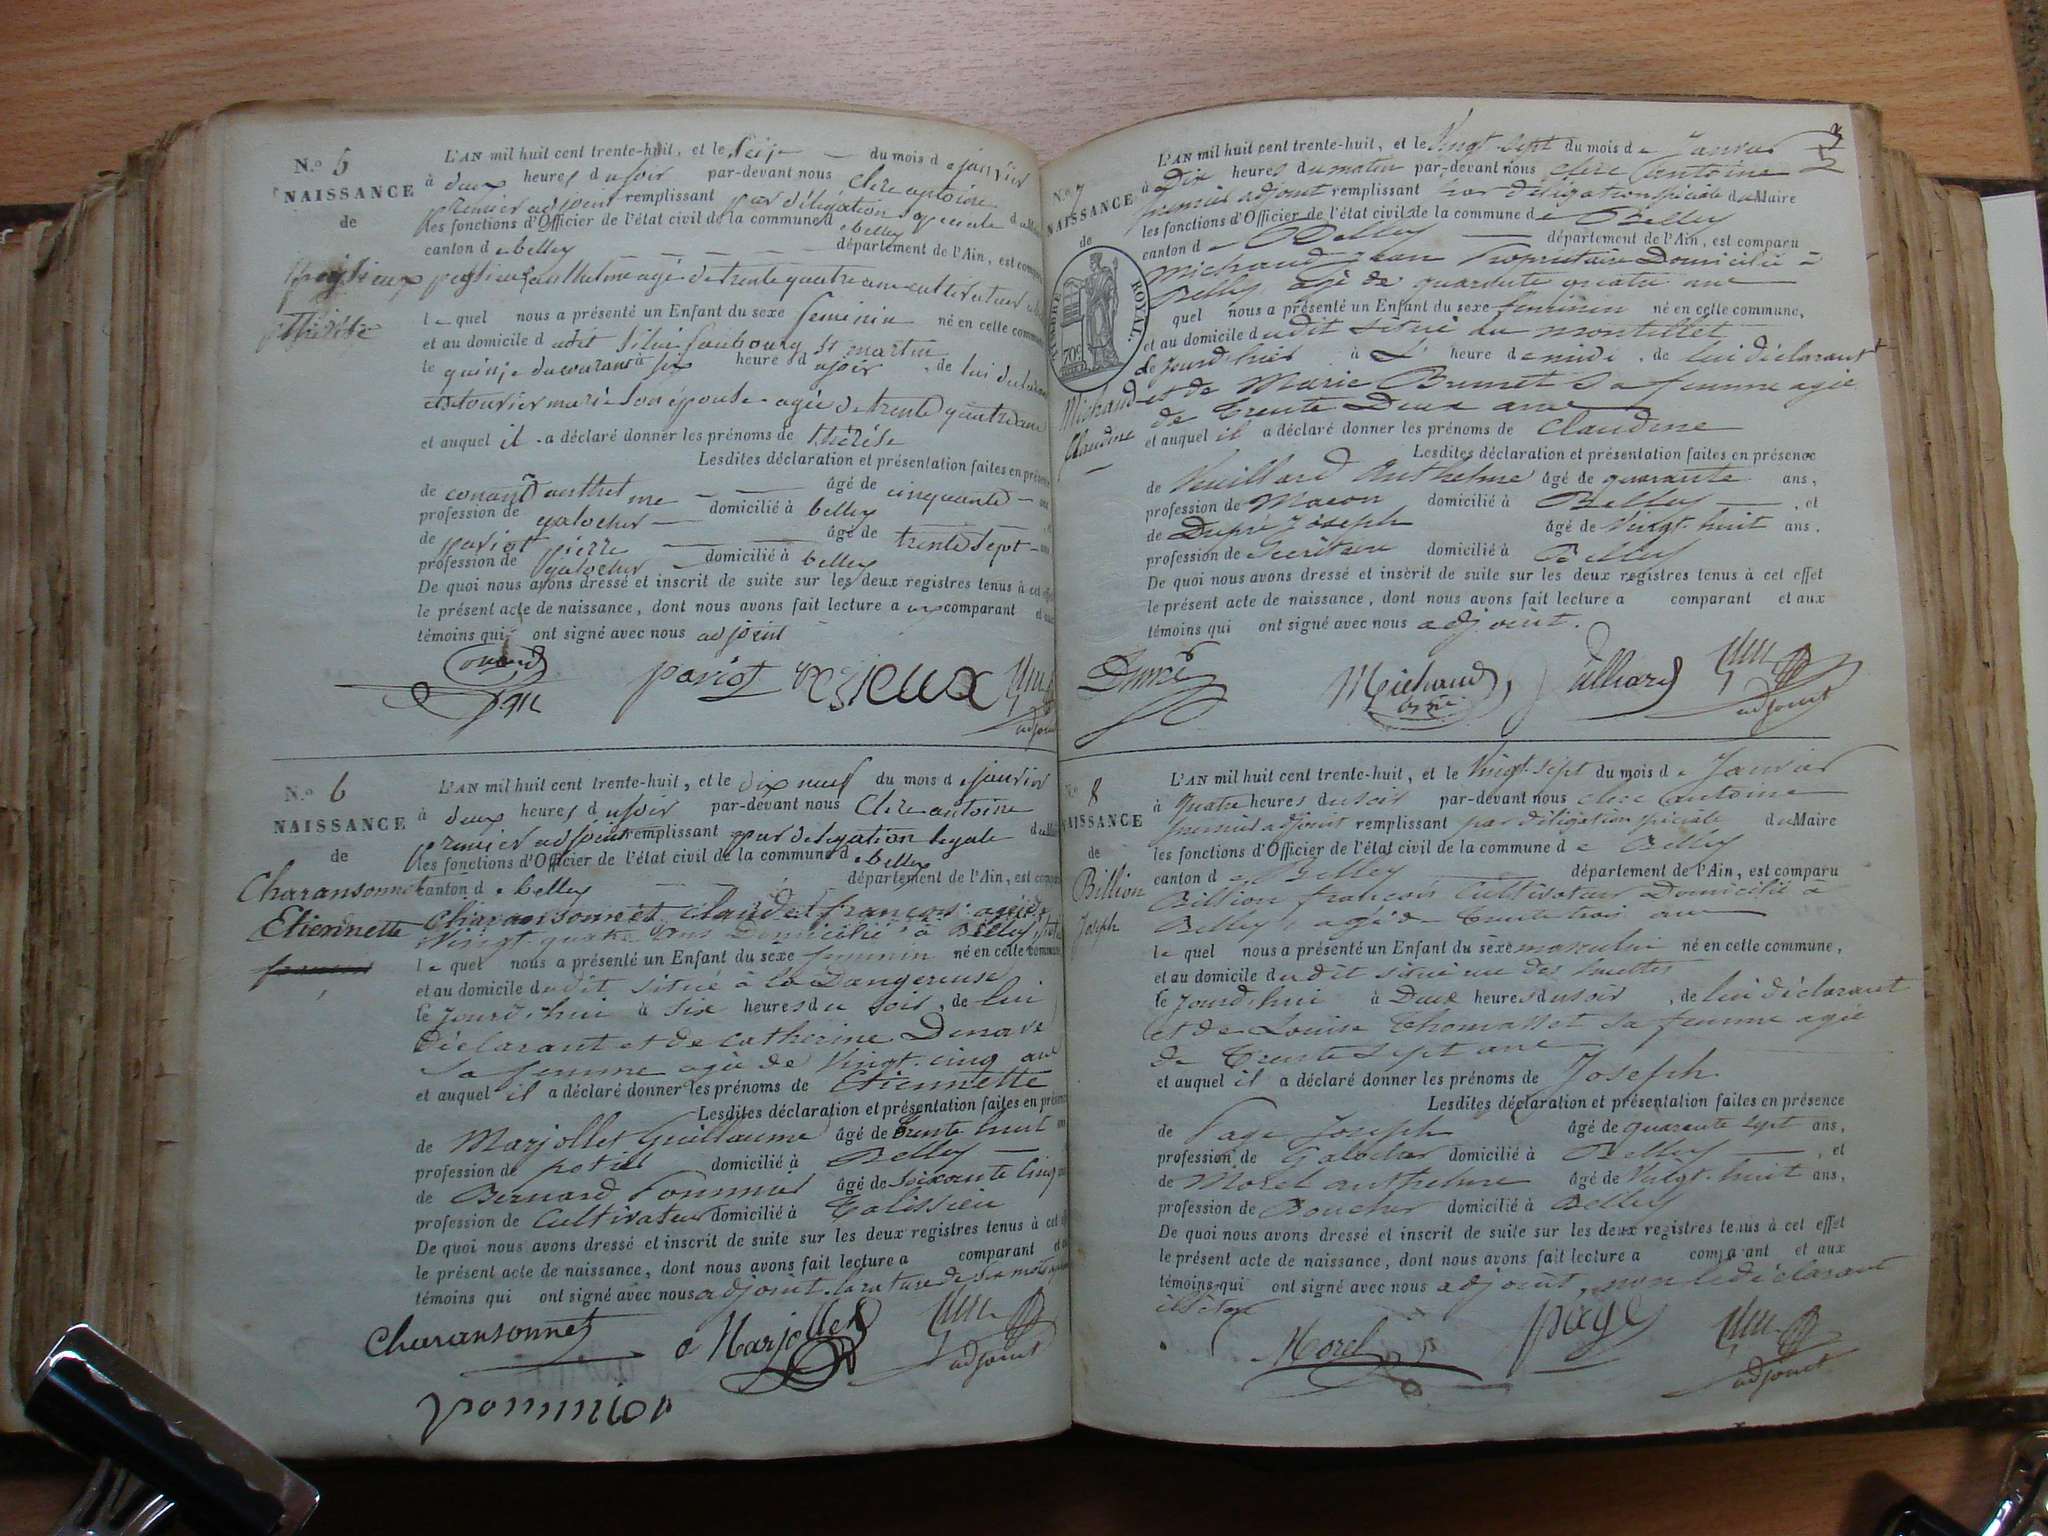 N.o 5
NAISSANCE
de
pezieux
Thérèse
L'AN mil huit cent trente-huit, et le seize du mois de janvier
à deux heures du soir par-devant nous clerc antoine
premier adjoint remplissant par délégation spéciale du Maire
les fonctions d'Officier de l'état civil de la commune de belley
canton de belley département de l'Ain, est comparu
anthelme agé de trente quatre ans cultivateur
le quel nous a présenté un Enfant du sexe feminin né en cette commune
et au domicile dudit situé faubourg St martin
le quinze du courant à six heures du soir, de lui déclarant
et de marie son épouse agée de trente quatre ans
et auquel il a déclaré donner les prénoms de thérèse
Lesdites déclaration et présentation faites en présence
de conand anthelme âgé de cinquante ans
profession de galocher domicilié à belley
de pariot pierre âgé de trente sept ans
profession de galocher domicilié à belley
De quoi nous avons dressé et inscrit de suite sur les deux registres tenus à cet effet
le présent acte de naissance, dont nous avons fait lecture aux comparant et aux
témoins qui ont signé avec nous adjoint
Conand pariot adjoint
N.o 6
NAISSANCE
de
Charansonnet
Etiennette
L'AN mil huit cent trente-huit, et le dix neuf du mois de janvier
à deux heures du soir par-devant nous Clerc antoine
premier adjoint remplissant par délégation légale du Maire
les fonctions d'Officier de l'état civil de la commune de belley
canton de belley département de l'Ain, est comparu
Charansonnet claude françois agé de
Vingt quatre ans Domicilié à Belley
le quel nous a présenté un Enfant du sexe feminin né en cette commune
et au domicile dudit situé à la Dangereuse
le jourd'hui à six heures du soir, de lui
déclarant et de catherine
sa femme agée de Vingt cinq ans
et auquel il a déclaré donner les prénoms de Etiennette
Lesdites déclaration et présentation faites en présence
de Marjollet Guillaume âgé de trente huit ans
profession de domicilié à Belley
de Bernard Pommier âgé de soixante cinq ans
profession de Cultivateur domicilié à Talissieu
De quoi nous avons dressé et inscrit de suite sur les deux registres tenus à cet effet
le présent acte de naissance, dont nous avons fait lecture a comparant et aux
témoins qui ont signé avec nous adjoint. la rature de six mots
Charansonnet Marjollet adjoint
pommier
3
N.o 7
NAISSANCE
de
TIMBRE ROYAL.
70c
Michaud
Claudine
L'AN mil huit cent trente-huit, et le Vingt sept du mois de Janvier
à Dix heures du matin par-devant nous clerc antoine
premier adjoint remplissant par délégation spéciale du Maire
les fonctions d'Officier de l'état civil de la commune de Belley
canton de Belley département de l'Ain, est comparu
Michaud Jean Propriétaire Domicilié à
Belley, agé de quarante quatre ans
quel nous a présenté un Enfant du sexe feminin né en cette commune,
et au domicile dudit situé au montillet
le jourd'hui à L' heure de midi, de lui déclarant
et de Marie Brunet sa femme agée
de trente Deux ans
et auquel il a déclaré donner les prénoms de Claudine
Lesdites déclaration et présentation faites en présence
de Vuillard Anthelme âgé de quarante ans,
profession de Macon domicilié à Belley, et
de Dupré Joseph âgé de Vingt huit ans.
profession de Secrétaire domicilié à Belley
De quoi nous avons dressé et inscrit de suite sur les deux registres tenus à cet effet
le présent acte de naissance, dont nous avons fait lecture a comparant et aux
témoins qui ont signé avec nous adjoint.
Dupré Michaud adjoint
N.o 8
NAISSANCE
de
Billion
Joseph
L'AN mil huit cent trente-huit, et le Vingt-Sept du mois de Janvier
à quatre heures du soir par-devant nous clerc antoine
premier adjoint remplissant par délégation spéciale du Maire
les fonctions d'Officier de l'état civil de la commune de Belley
canton de Belley département de l'Ain, est comparu
Billion françois Cultivateur Domicilié à
Belley, agé de trente trois ans
le quel nous a présenté un Enfant du sexe masculin né en cette commune,
et au domicile dudit situé rue des
le jourd'hui à Deux heures du soir, de lui déclarant
et de Louise Thomasset sa femme agée
de trente sept ans
et auquel il a déclaré donner les prénoms de Joseph
Lesdites déclaration et présentation faites en présence
de Page Joseph âgé de quarante sept ans,
profession de Galocher domicilié à Belley, et
de Morel anthelme âgé de Vingt-huit ans,
profession de Boucher domicilié à Belley
De quoi nous avons dressé et inscrit de suite sur les deux registres tenus à cet effet
le présent acte de naissance, dont nous avons fait lecture a comparant et aux
témoins qui ont signé avec nous adjoint, non le déclarant
Morel page adjoint